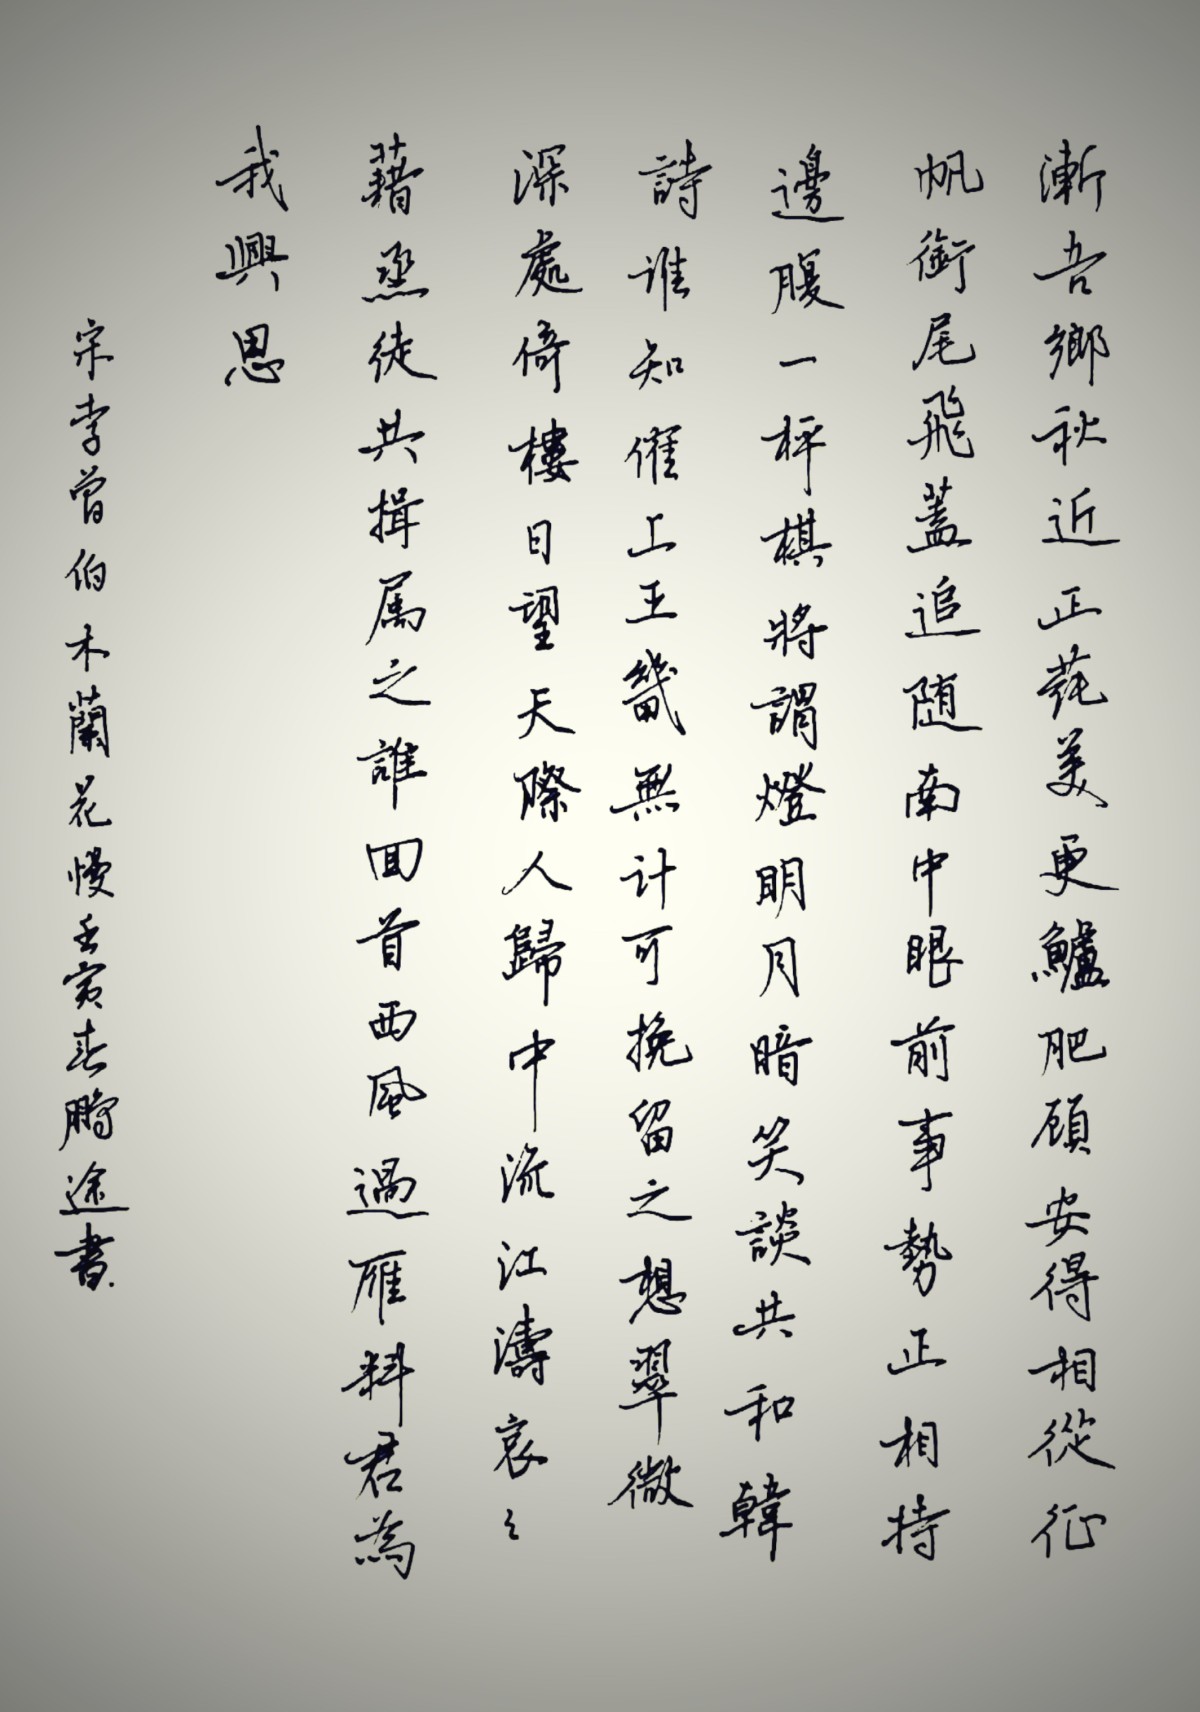 漸吾鄉秋近正蒓美更鱸肥顧安得相從征
帆銜尾飛蓋追随南中眼前事勢正相持
邊腹一枰棋將謂燈明月暗笑談共和韓
詩谁知催上王畿無计可挽留之想翠微
深處倚樓日望天際人歸中流江濤哀〻
藉烝徒共揖属之誰回首西風過雁料君為
我興思
宋李曾伯木蘭花慢壬寅春鵬途書